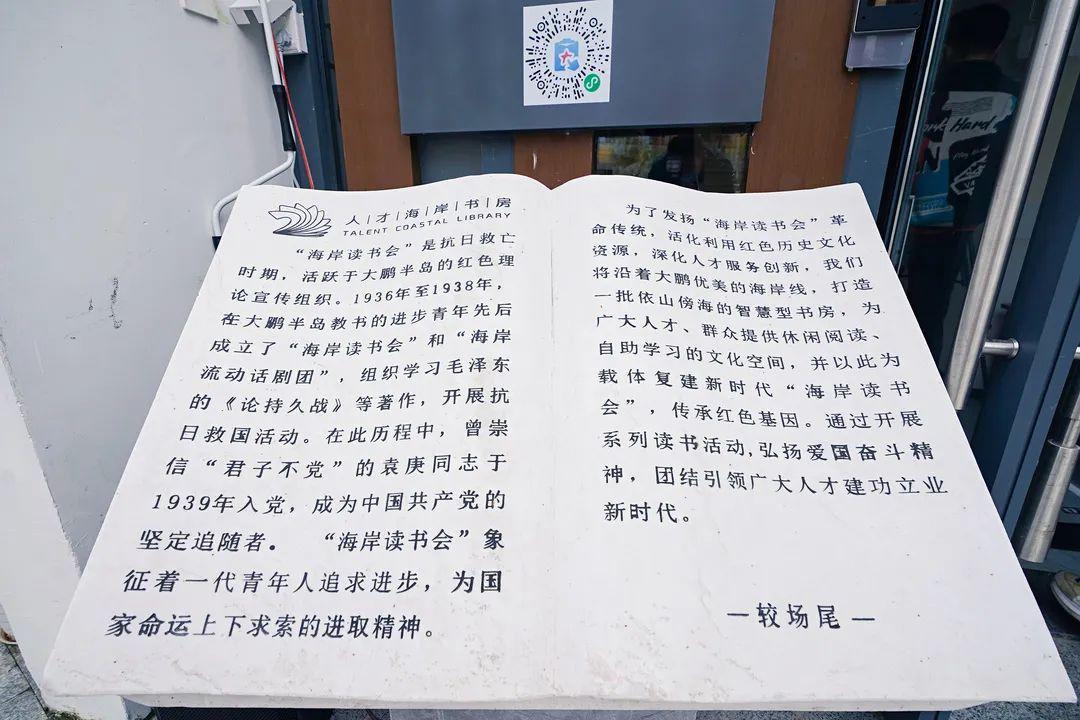 人|才|海|岸|书|房
TALENT COASTAL LIBRARY
“海岸读书会”是抗日救亡
时期，活跃于大鹏半岛的红色理
论宣传组织。1936年至1938年，
在大鹏半岛教书的进步青年先后
成立了“海岸读书会”和“海岸
流动话剧团”，组织学习毛泽东
的《论持久战》等著作，开展抗
日救国活动。在此历程中，曾崇
信“君子不党”的袁庚同志于
1939年入党，成为中国共产党的
坚定追随者。 “海岸读书会”象
征着一代青年人追求进步，为国
家命运上下求索的进取精神。
为了发扬“海岸读书会”革
命传统，活化利用红色历史文化
资源，深化人才服务创新，我们
将沿着大鹏优美的海岸线，打造
一批依山傍海的智慧型书房，为
广大人才、群众提供休闲阅读、
自助学习的文化空间，并以此为
载体复建新时代“海岸读书
会”，传承红色基因。通过开展
系列读书活动,弘扬爱国奋斗精
神，团结引领广大人才建功立业
新时代。
—较场尾—
Hard